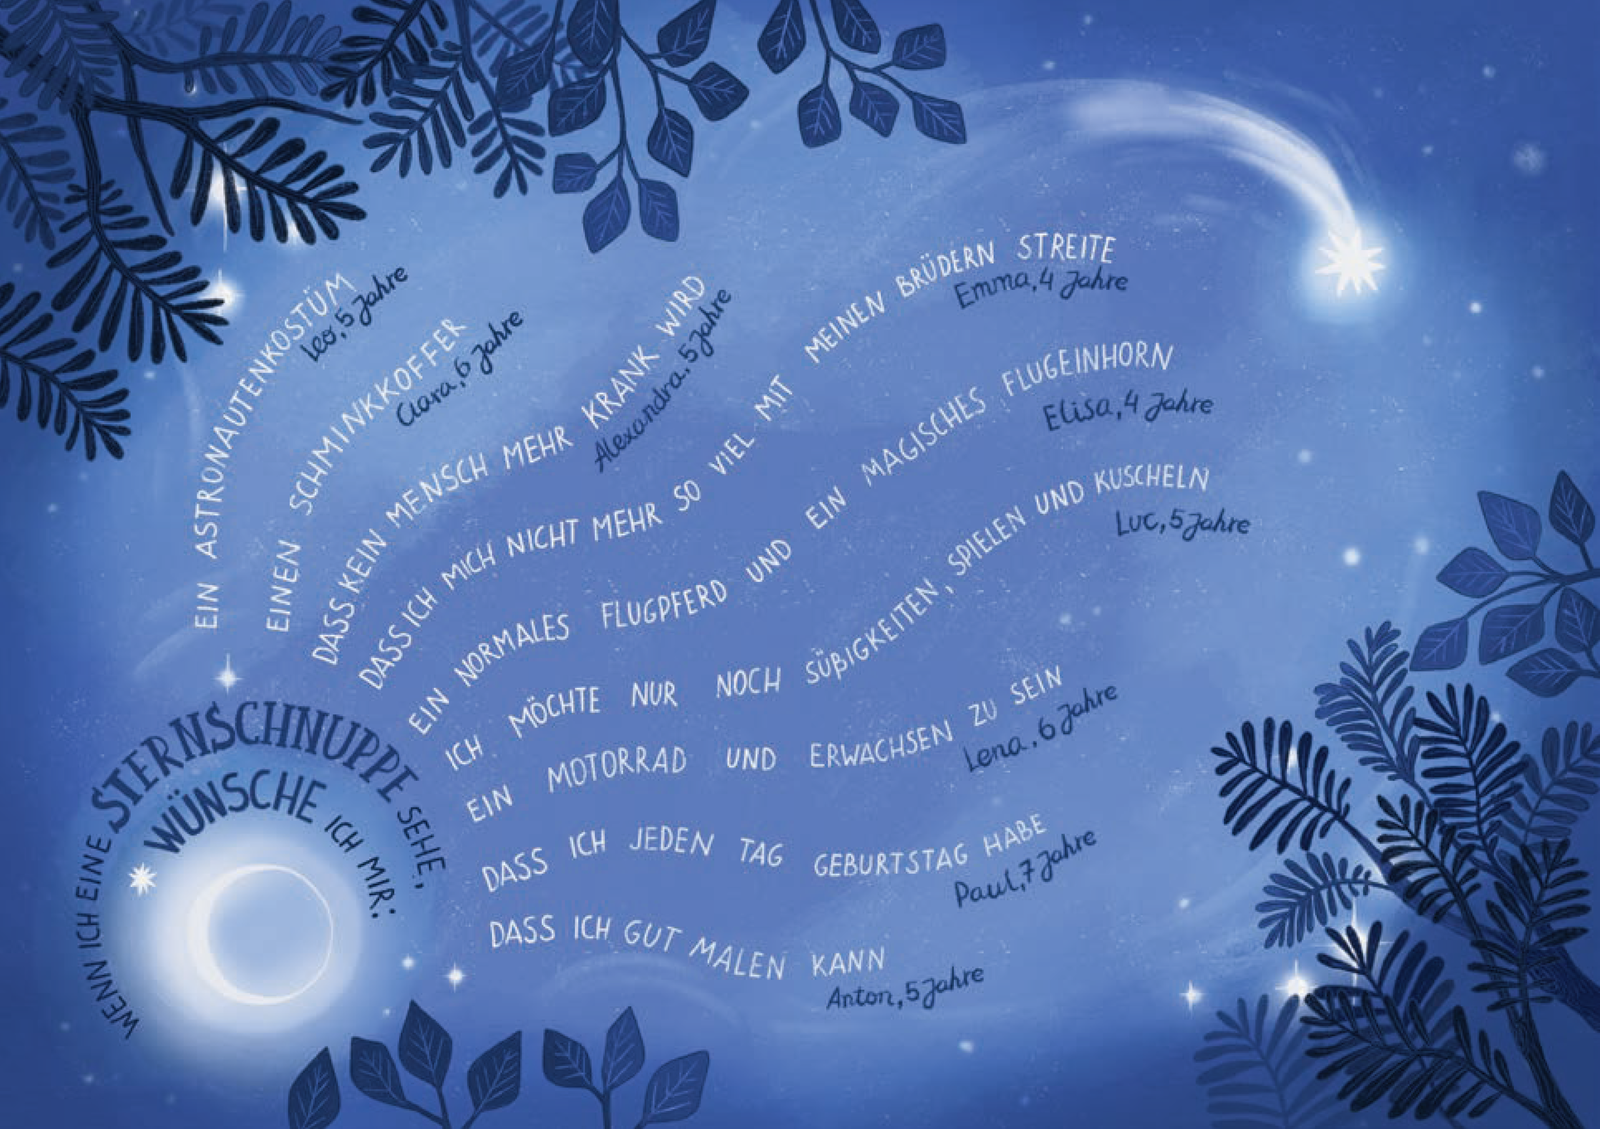 WENN ICH EINE STERNSCHNUPPE SEHE,
WÜNSCHE ICH MIR:
EIN ASTRONAUTENKOSTÜM
Leo, 5 Jahre
EINEN SCHMINKKOFFER
Clara, 6 Jahre
DASS KEIN MENSCH MEHR KRANK WIRD
Alexandra, 5 Jahre
DASS ICH MICH NICHT MEHR SO VIEL MIT MEINEN BRÜDERN STREITE
Emma, 4 Jahre
EIN NORMALES FLUGPFERD UND EIN MAGISCHES FLUGEINHORN
Elisa, 4 Jahre
ICH MÖCHTE NUR NOCH SÜßIGKEITEN, SPIELEN UND KUSCHELN
Luc, 5 Jahre
EIN MOTORRAD UND ERWACHSEN ZU SEIN
Lena, 6 Jahre
DASS ICH JEDEN TAG GEBURTSTAG HABE
Paul, 7 Jahre
DASS ICH GUT MALEN KANN
Anton, 5 Jahre